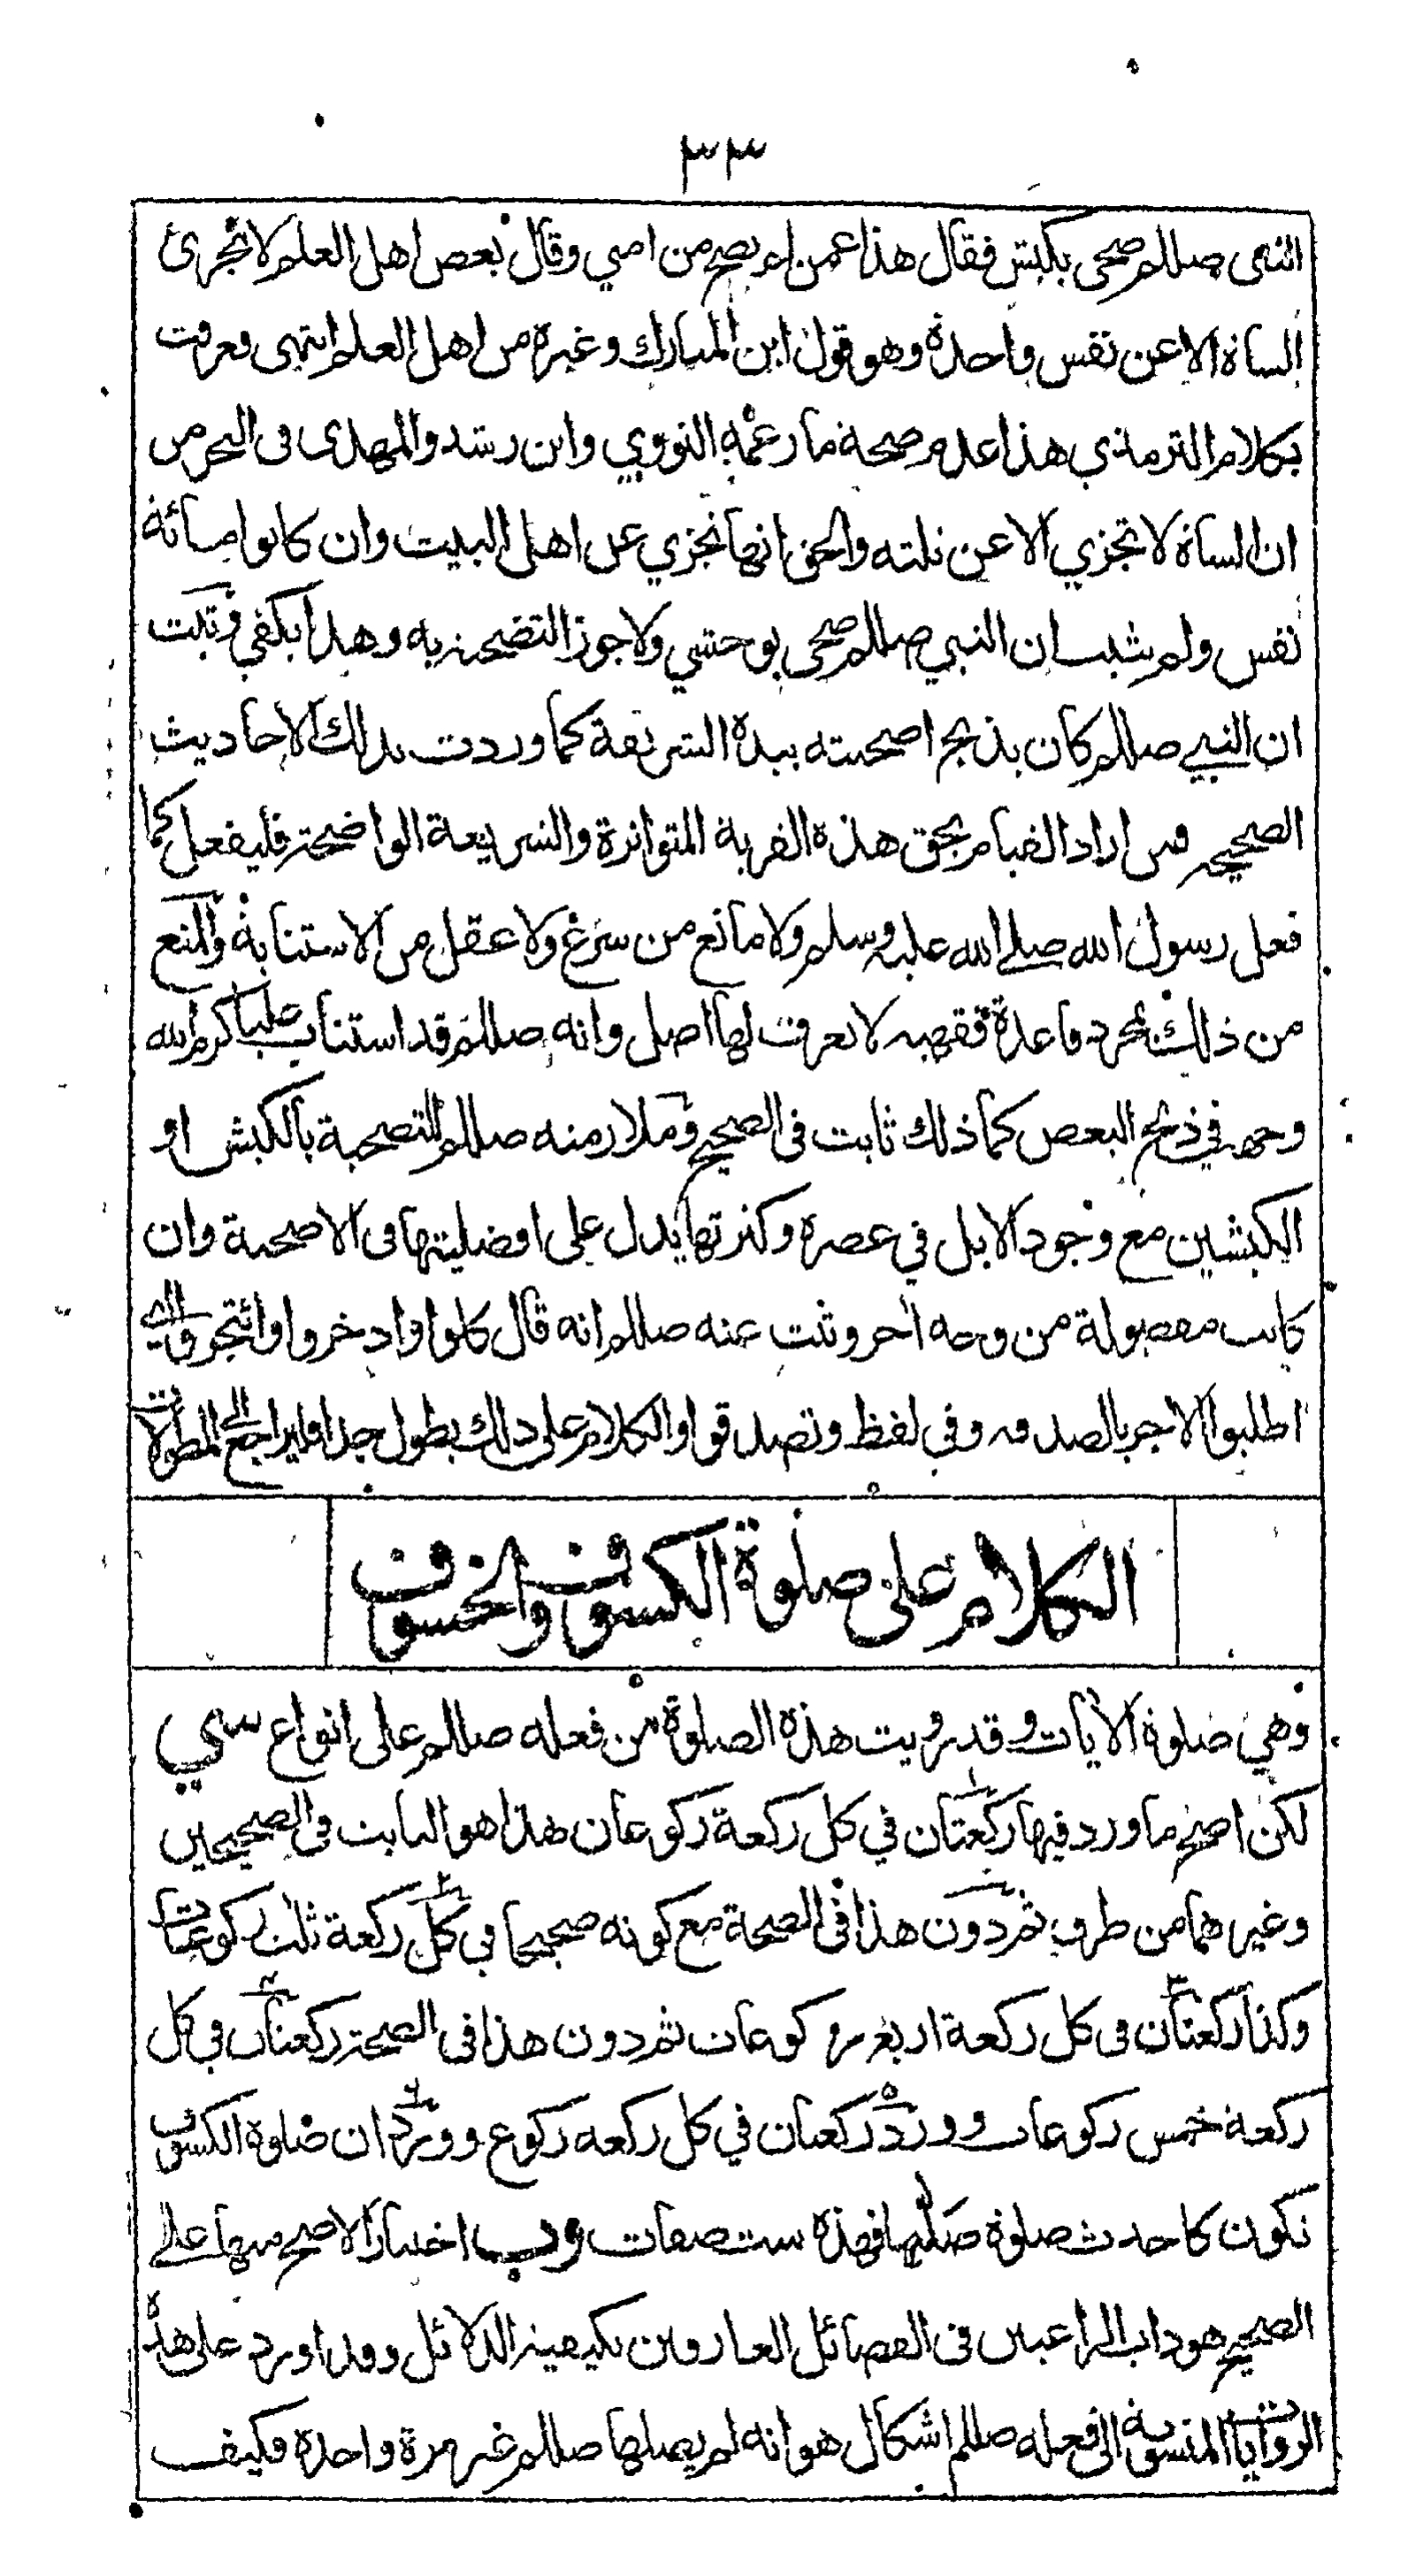 ٣٣
النبى صللم ضحى بكبش فقال هذا عمن لم يضح من امتي وقال بعض اهل العلم لا تجزئ
الشاة الا عن نفس واحدة وهو قول ابن المبارك وغيره من اهل العلم انتهى وعرفت
بكلام الترمذي هذا عدم صحة ما زعمه النووي وابن رشد والمهدى فى البحر من
ان الشاة لا تجزي الا عن ثلثه والحق انها تجزي عن اهل البيت وان كانوا مائة
نفس ولم يثبت ان النبي صللم ضحى بوحشي ولا جوز التضحية به وهذا يكفي وثبت
ان النبي صللم كان يذبح اضحيته بيده الشريفة كما وردت بذلك الاحاديث
الصحيحه ومن اراد القيام بحق هذه القربة المتواترة والشريعة الواضحة فليفعل كما
فعل رسول الله صلى الله عليه وسلم ولا مانع من شرع ولا عقل من الاستنابة والمنع
من ذلك لمجرد قاعدة فقهيه لا يعرف لها اصل وانه صللم قد استناب عليا كرم الله
وجهه في ذبح البعض كما ذلك ثابت فى الصحيح وملازمته صللم للتضحية بالكبش او
الكبشين مع وجود الابل في عصره وكثرتها يدل على افضليتها فى الاضحية وان
كانت مفضولة من وجه آخر وثبت عنه صللم انه قال كلوا وادخروا وائتجروا اي
اطلبوا الاجر بالصدقه وفي لفظ وتصدقوا والكلام على ذلك يطول جدا فليراجع المطولات
الكلام على صلوة الكسوف والخسوف
وهي صلوة الآيات وقد رويت هذه الصلوة من فعله صللم على انواع ستى
لكن اصح ما ورد فيها ركعتان في كل ركعة ركوعان هذا هو الثابت فى الصحيحين
وغيرهما من طرق ثم دون هذا فى الصحة مع كونه صحيحا في كل ركعة ثلث ركوعات
وكذا ركعتان فى كل ركعة اربعة ركوعات ثم دون هذا فى الصحة ركعتان في كل
ركعة خمس ركوعات وورد ركعتان في كل ركعه ركوع وورد ان صلوة الكسوف
تكون كاحدث صلوة صليها فهذه ست صفات اختيار الاصح منها على
الصحيح هو داب الراغبين فى الفضائل العارفين بكيفية الدلائل وقد اورد على هذه
الروايات المنسوبة الى فعله صللم اشكال هو انه لم يصلها صللم غير مرة واحدة فكيف